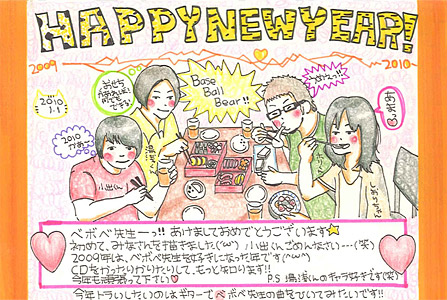 HAPPY NEW YEAR!
2009
2010
2010
1.1
Base
Ball
Bear!!
2010
小出くん
ベボベ先生ーっ!! あけましておめでとうございます
初めて、みなさんを描きました(^ω^) 小出くんごめんなさい…(笑)
2009年は、ベボベ先生を好きになった年です(^ω^)
CDをかったりかりたりして、もっと知ります!!
今年も頑張って下さい♡ P.S 湯浅くんのキャラ好きです(笑)
今年トライしたいのはギターでベボベ先生の曲をひいてみたいです!!